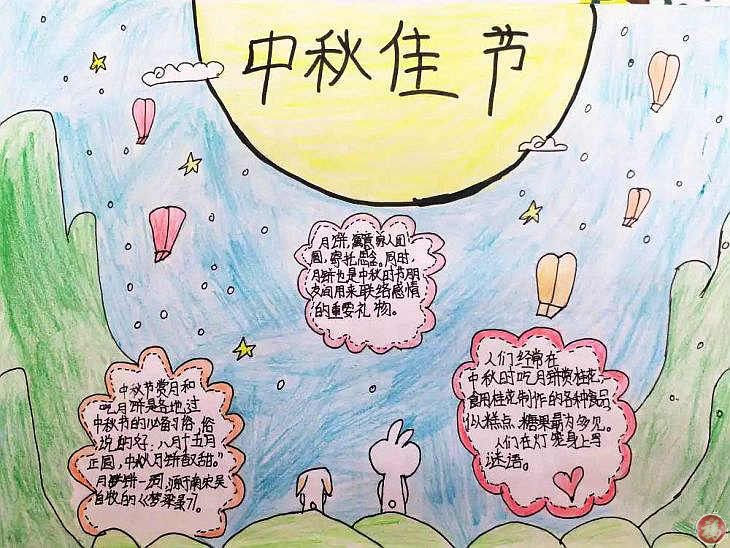 中秋佳节
月饼,寓意家人团
圆,寄托思念。同时,
月饼也是中秋时节朋
友间用来联络感情
的重要礼物。
中秋节赏月和
吃月饼是各地过
中秋节的必备习俗,俗
说的好:八月十五月
正圆,中秋月饼香又甜。"
月饼一词,源于南宋吴
自牧的《梦粱录》。
人们经常在
中秋时吃月饼赏桂花,
食用桂花制作的各种食品,
以糕点、糖果最为多见。
人们在灯笼身上写
谜语。